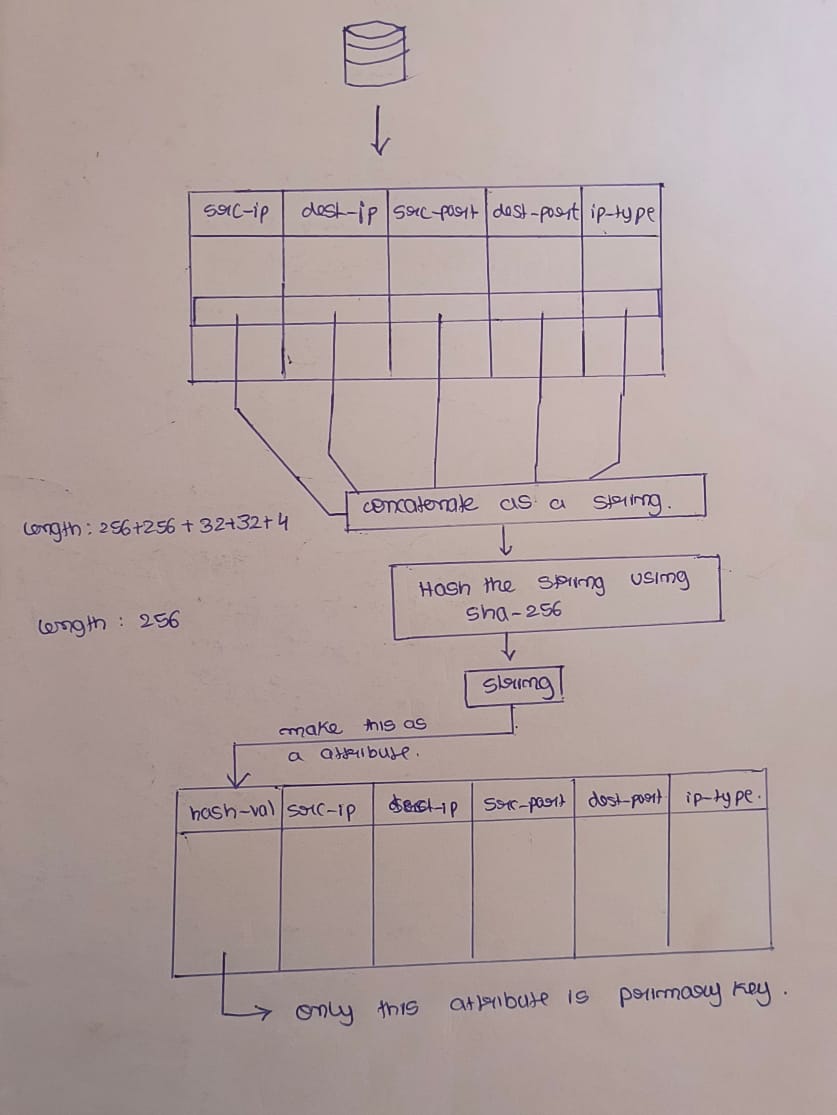 src-ip dest-ip src-port dest-port ip-type
concatenate as a string.
length: 256+256+32+32+4
Hash the string using
sha-256
length : 256
string
make this as
a attribute.
hash-val src-ip dest-ip src-port dest-port ip-type.
only this attribute is primary key.